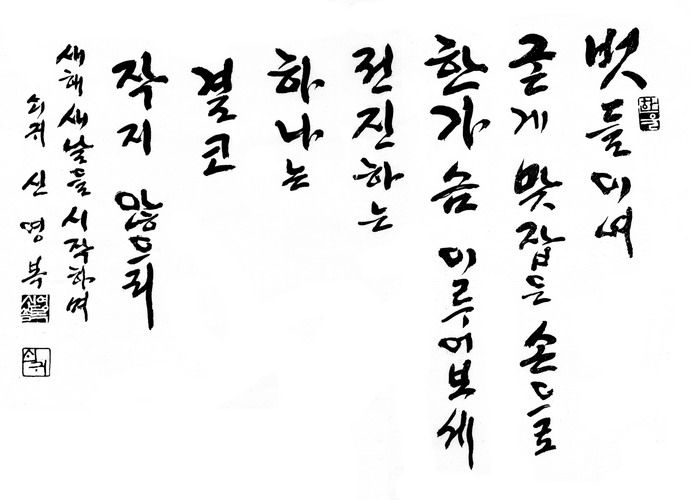 벗들이여
굳게 맞잡은 손으로
한가슴 이루어보세
전진하는
하나는
결코
작지 않으리
새해 새날을 시작하며
쇠귀 신영복
쇠귀